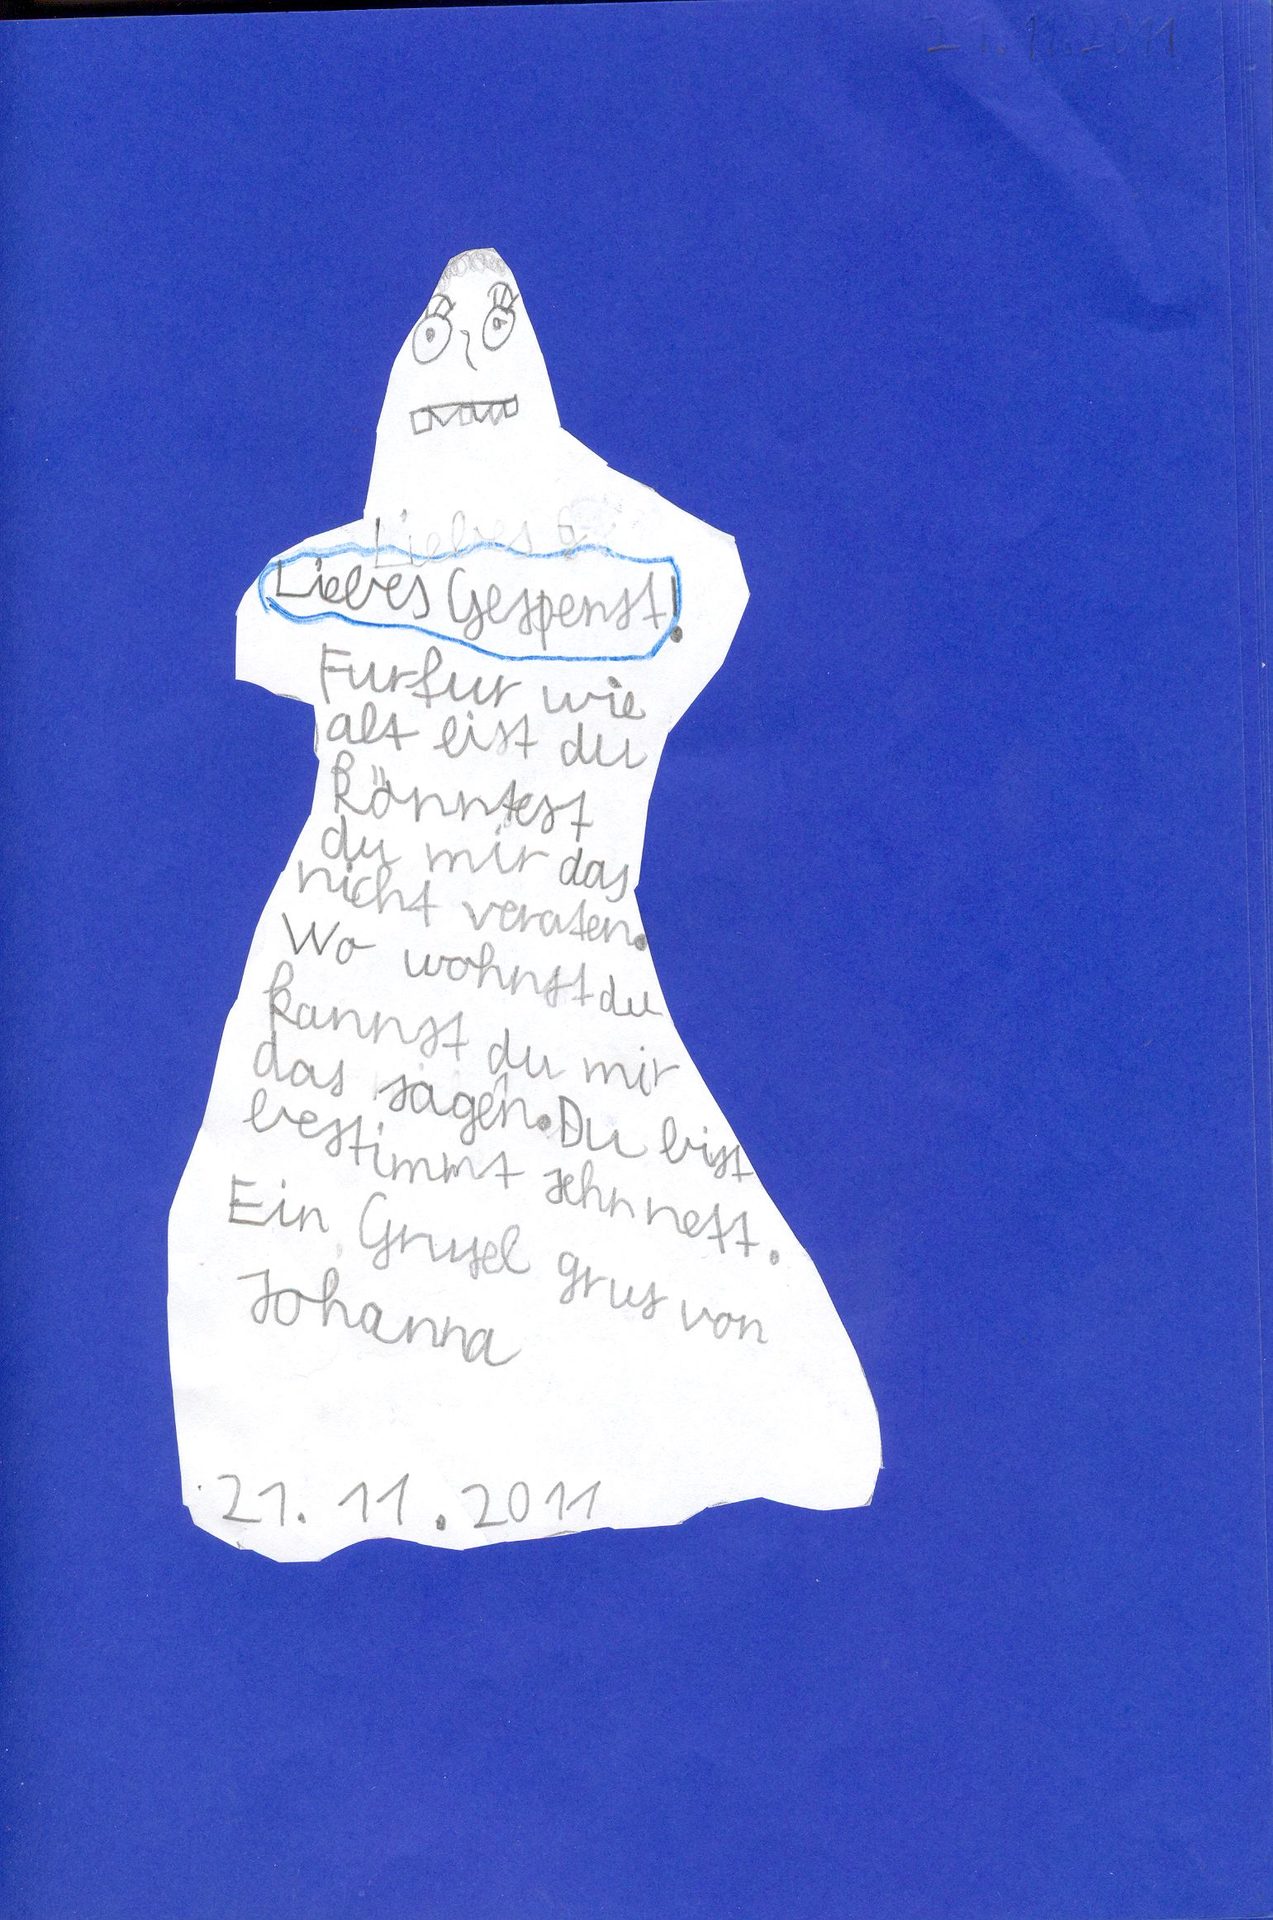 21.11.2011
Liebes G
Liebes Gespenst!
Furfur wie
alt bist du
könntest
du mir das
nicht veraten.
Wo wohnst du
kannst du mir
das sagen. Du bist
bestimmt sehn nett.
Ein Grusel grus von
Johanna
21.11.2011